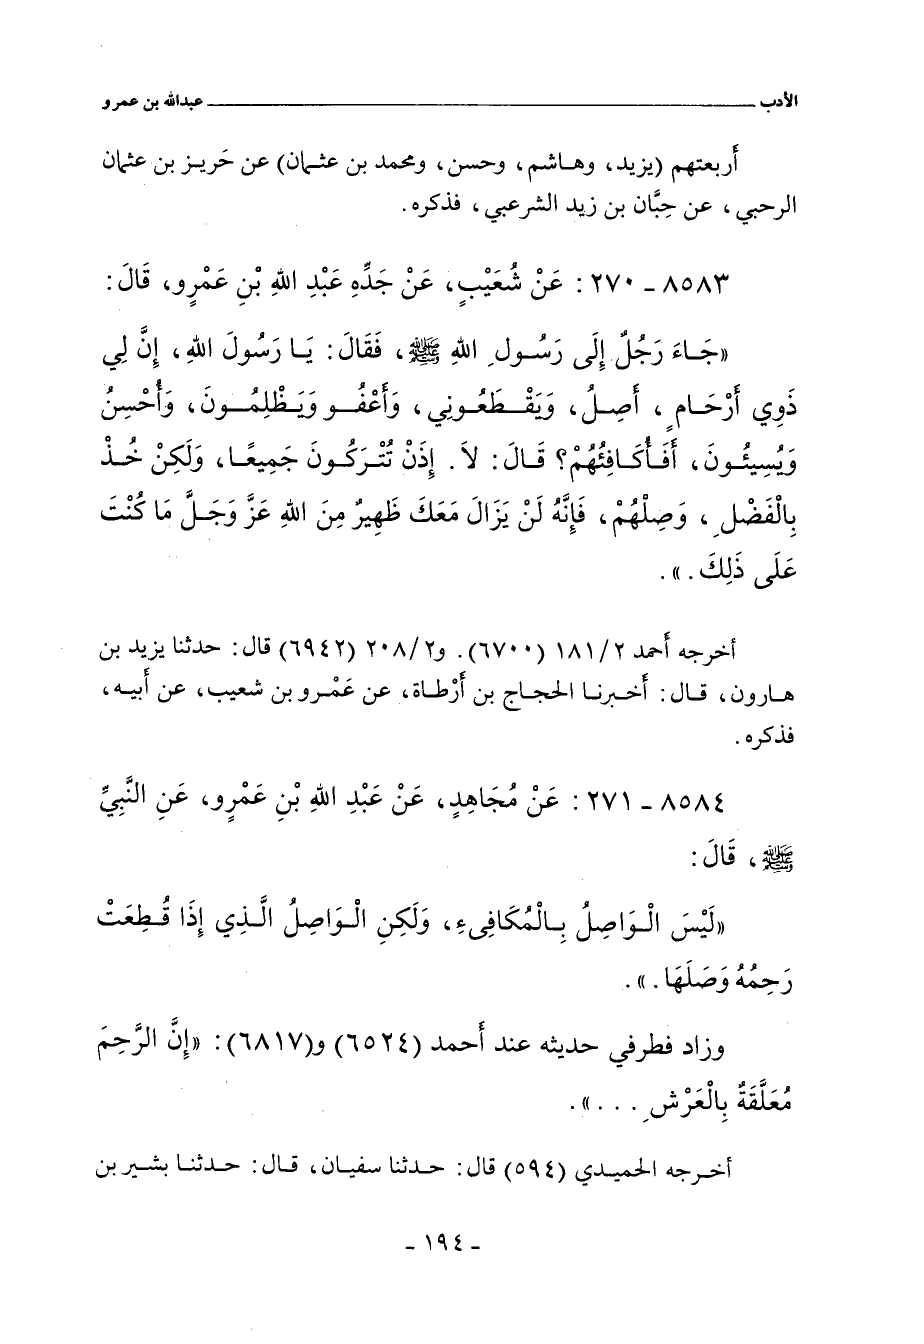 الأدب ــــــــــــــــــــــــ عبدالله بن عمرو
أربعتهم (يزيد، وهاشم، وحسن، ومحمد بن عثمان) عن حَريز بن عثمان
الرحبي، عن حِبَّان بن زيد الشرعبي، فذكره.
٨٥٨٣ - ٢٧٠ : عَنْ شُعَيْبٍ، عَنْ جَدِّهِ عَبْدِ اللهِ بْنِ عَمْرٍو، قَالَ:
«جَاءَ رَجُلٌ إِلَى رَسُولِ اللهِ ﷺ، فَقَالَ: يَا رَسُولَ اللهِ، إِنَّ لِي
ذَوِي أَرْحَامٍ، أَصِلُ، وَيَقْطَعُونِي، وَأَعْفُو وَيَظْلِمُونَ، وَأُحْسِنُ
وَيُسِيئُونَ، أَفَأُكَافِئُهُمْ؟ قَالَ: لاَ. إِذَنْ تُتْرَكُونَ جَمِيعًا، وَلَكِنْ خُذْ
بِالْفَضْلِ، وَصِلْهُمْ، فَإِنَّهُ لَنْ يَزَالَ مَعَكَ ظَهِيرٌ مِنَ اللهِ عَزَّ وَجَلَّ مَا كُنْتَ
عَلَى ذَلِكَ.».
أخرجه أحمد ١٨١/٢ (٦٧٠٠). و٢٠٨/٢ (٦٩٤٢) قال: حدثنا يزيد بن
هارون، قال: أخبرنا الحجاج بن أرْطاة، عن عَمْرو بن شعيب، عن أبيه،
فذكره.
٨٥٨٤ - ٢٧١ : عَنْ مُجَاهِدٍ، عَنْ عَبْدِ اللهِ بْنِ عَمْرٍو، عَنِ النَّبِيِّ
ﷺ، قَالَ:
«لَيْسَ الْوَاصِلُ بِالْمُكَافِىءِ، وَلَكِنِ الْوَاصِلُ الَّذِي إِذَا قُطِعَتْ
رَحِمُهُ وَصَلَهَا.».
وزاد فطرفي حديثه عند أحمد (٦٥٢٤) و(٦٨١٧): «إِنَّ الرَّحِمَ
مُعَلَّقَةٌ بِالْعَرْشِ....».
أخرجه الحميدي (٥٩٤) قال: حدثنا سفيان، قال: حدثنا بشير بن
- ١٩٤ -